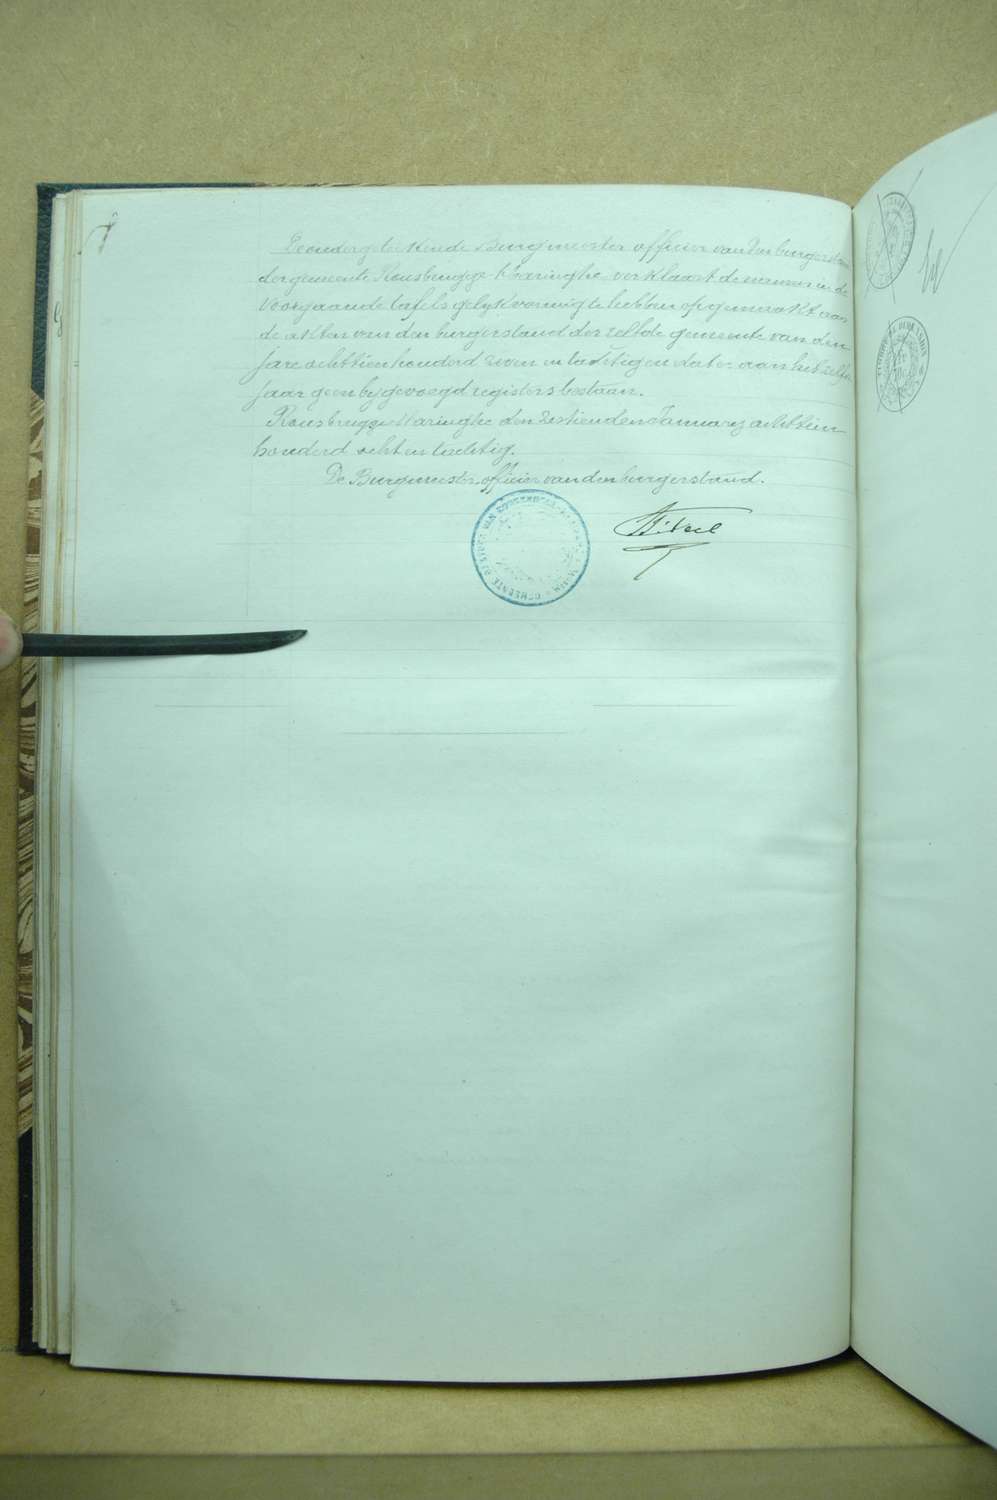 De ondergeteekende Burgmeester officier van den burgerstand
der gemeente Rousbrugge Haringhe verklaart de namen in de
voorgaande tafels gelykvormig te hebben opgemaakt aan
de akten van den burgerstand der zelfde gemeente van den
jare achttien honderd zeven en tachtig en dat er aan het zelfde
jaar geen bygevoegd registers bestaan.
Rousbrugge Haringhe den zestienden January achttien
honderd acht en tachtig.
De Burgmeester officier van den burgerstand.